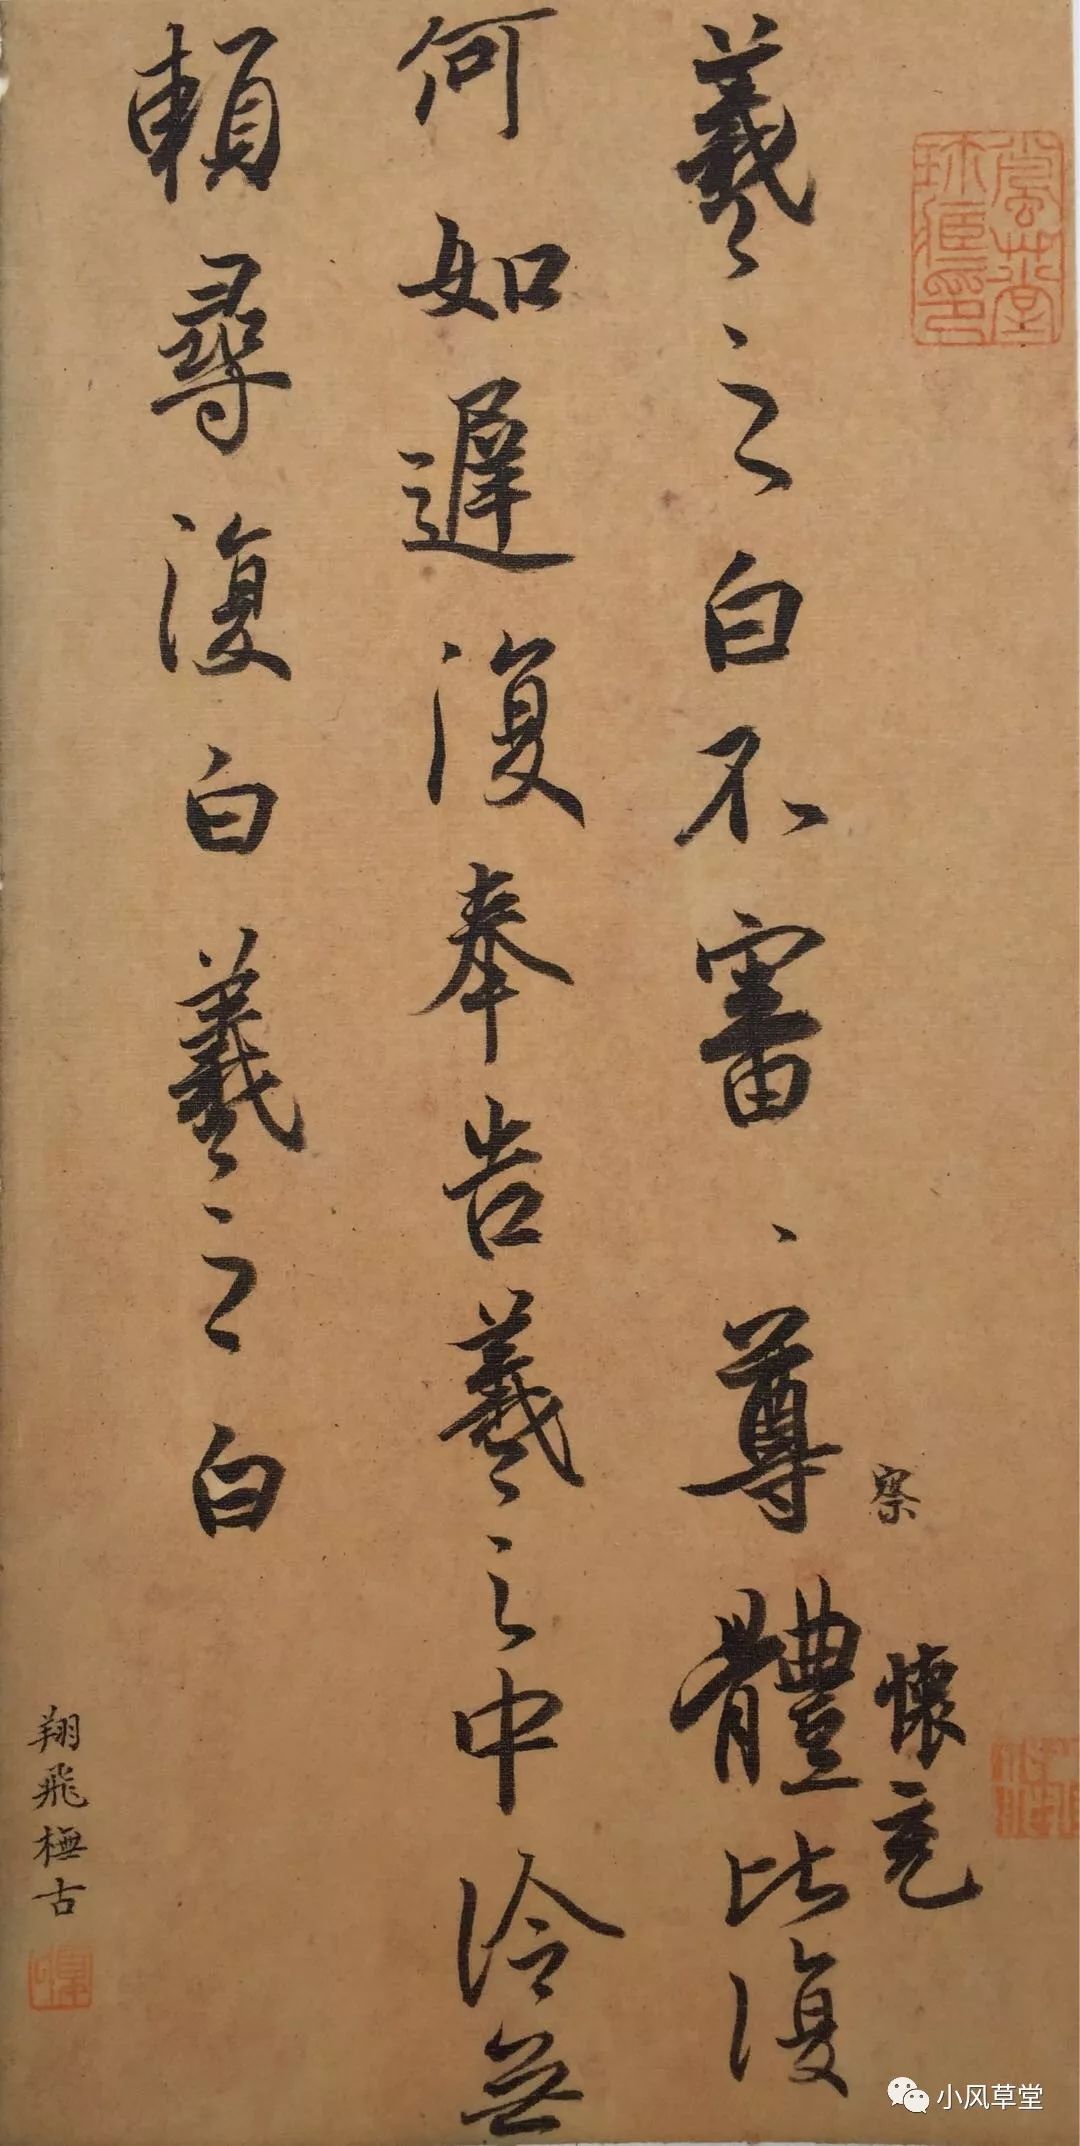 羲之白不審、尊體比復
察
懷充
何如遲復奉告羲之中冷無
賴尋復白羲之白
翔飛橅古
小风草堂